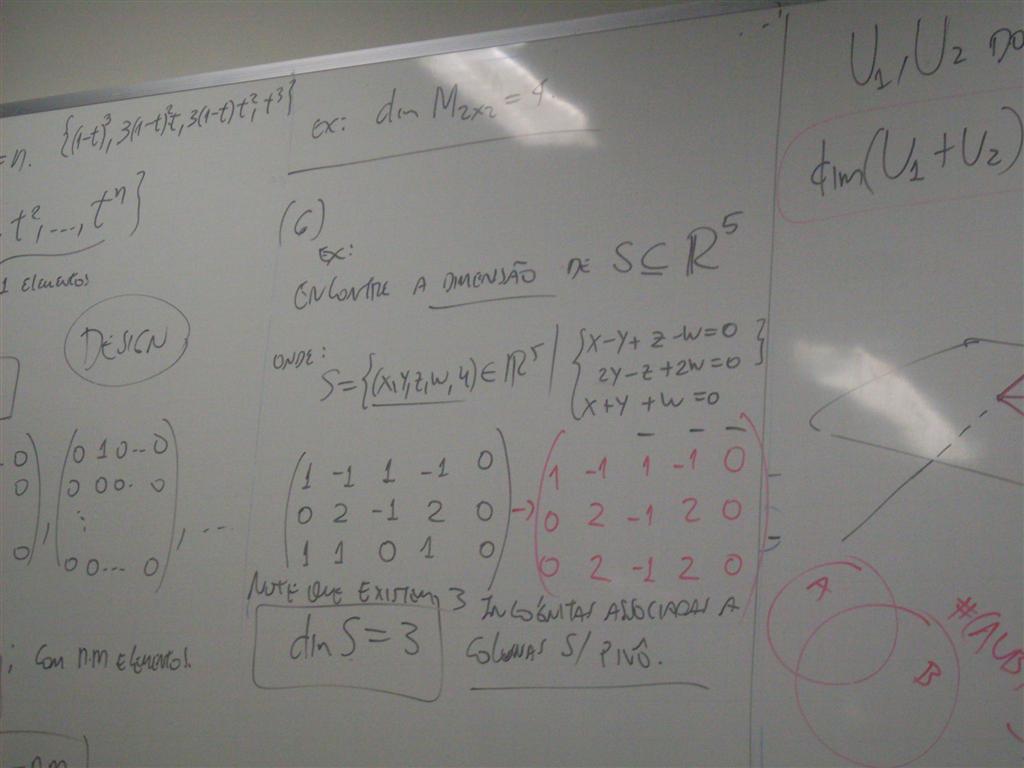 = n. {(1-t)³, 3(1-t)²t, 3(1-t)t², t³}
t²,..., tⁿ}
1 ELEMENTOS
DESIGN
0 ) ( 0 1 0 ... 0
0 ) ( 0 0 0 . 0
⋮
0 ) , ( 0 0 ... 0 ) , ...
; COM n.m ELEMENTOS.
EX: dim M₂ₓ₂ = 4
(6)
EX:
ENCONTRE A DIMENSÃO DE S ⊆ ℝ⁵
ONDE:
S = {(x,y,z,w,u) ∈ ℝ⁵ | { x-y+z-w=0
2y-z+2w=0 }
x+y+w=0
1 -1 1 -1 0
0 2 -1 2 0
1 1 0 1 0
→
1 -1 1 -1 0
0 2 -1 2 0
0 2 -1 2 0
NOTE QUE EXISTEM 3 INCÓGNITAS ASSOCIADAS A
COLUNAS S/ PIVÔ.
dim S = 3
U₁, U₂ DO
dim(U₁+U₂)
A
B
#(A∪B)